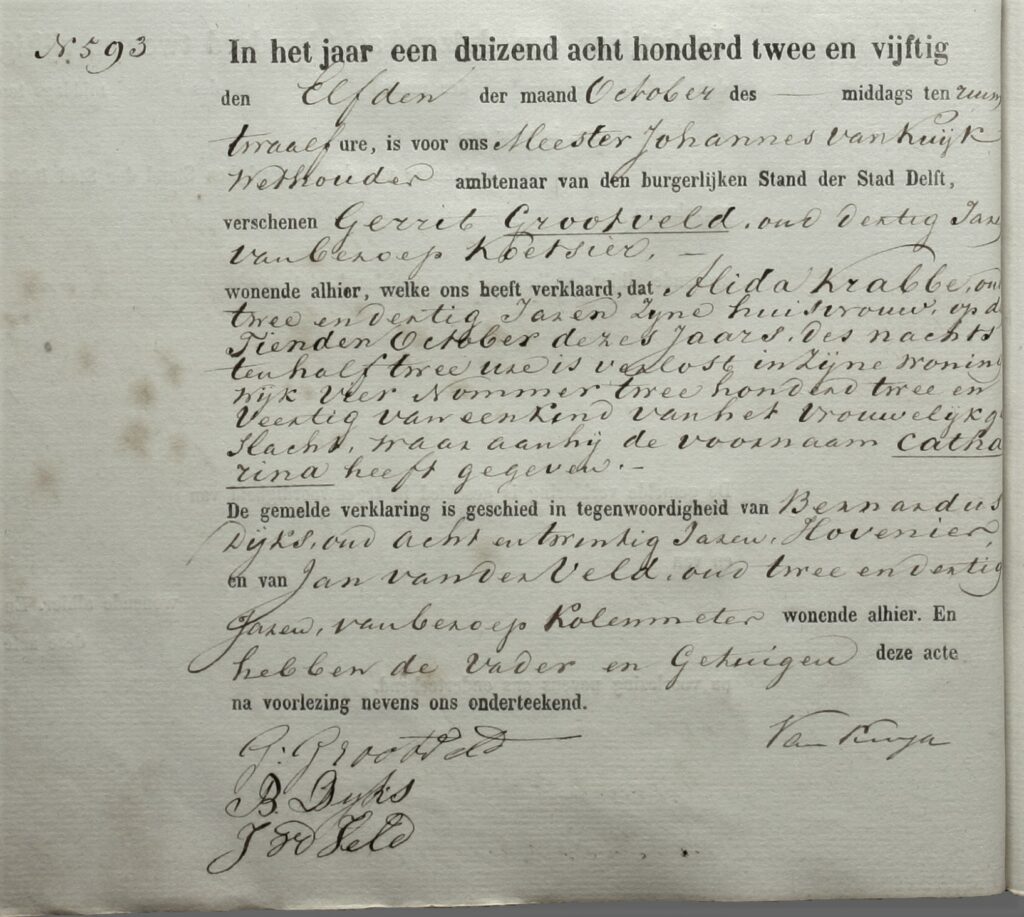 N. 593
In het jaar een duizend acht honderd twee en vijftig
den Elfden der maand October des — middags ten ruim
twaalf ure, is voor ons Meester Johannes van Kuijk
Wethouder ambtenaar van den burgerlijken Stand der Stad Delft,
verschenen Gerrit Grootveld, oud dertig Jaren
van beroep Koetsier, —
wonende alhier, welke ons heeft verklaard, dat Alida Krabbe, oud
twee en dertig Jaren Zijne huisvrouw, op d
Tienden October dezes Jaars, des nachts
ten half twee ure is verlost in Zijne woning
wijk Vier Nommer twee honderd twee en
Veertig van een Kind van het Vrouwelijk ge
slacht, waar aan hij de voornaam Catha
rina heeft gegeven. —
De gemelde verklaring is geschied in tegenwoordigheid van Bernardus
Dijks, oud acht en twintig Jaren, Hovenier,
en van Jan van der Veld, oud twee en dertig
Jaren, van beroep Kolenmeter wonende alhier. En
hebben de Vader en Getuigen deze acte
na voorlezing nevens ons onderteekend.
G. Grootveld Van Kuyk
B. Dyks
J vd Veld